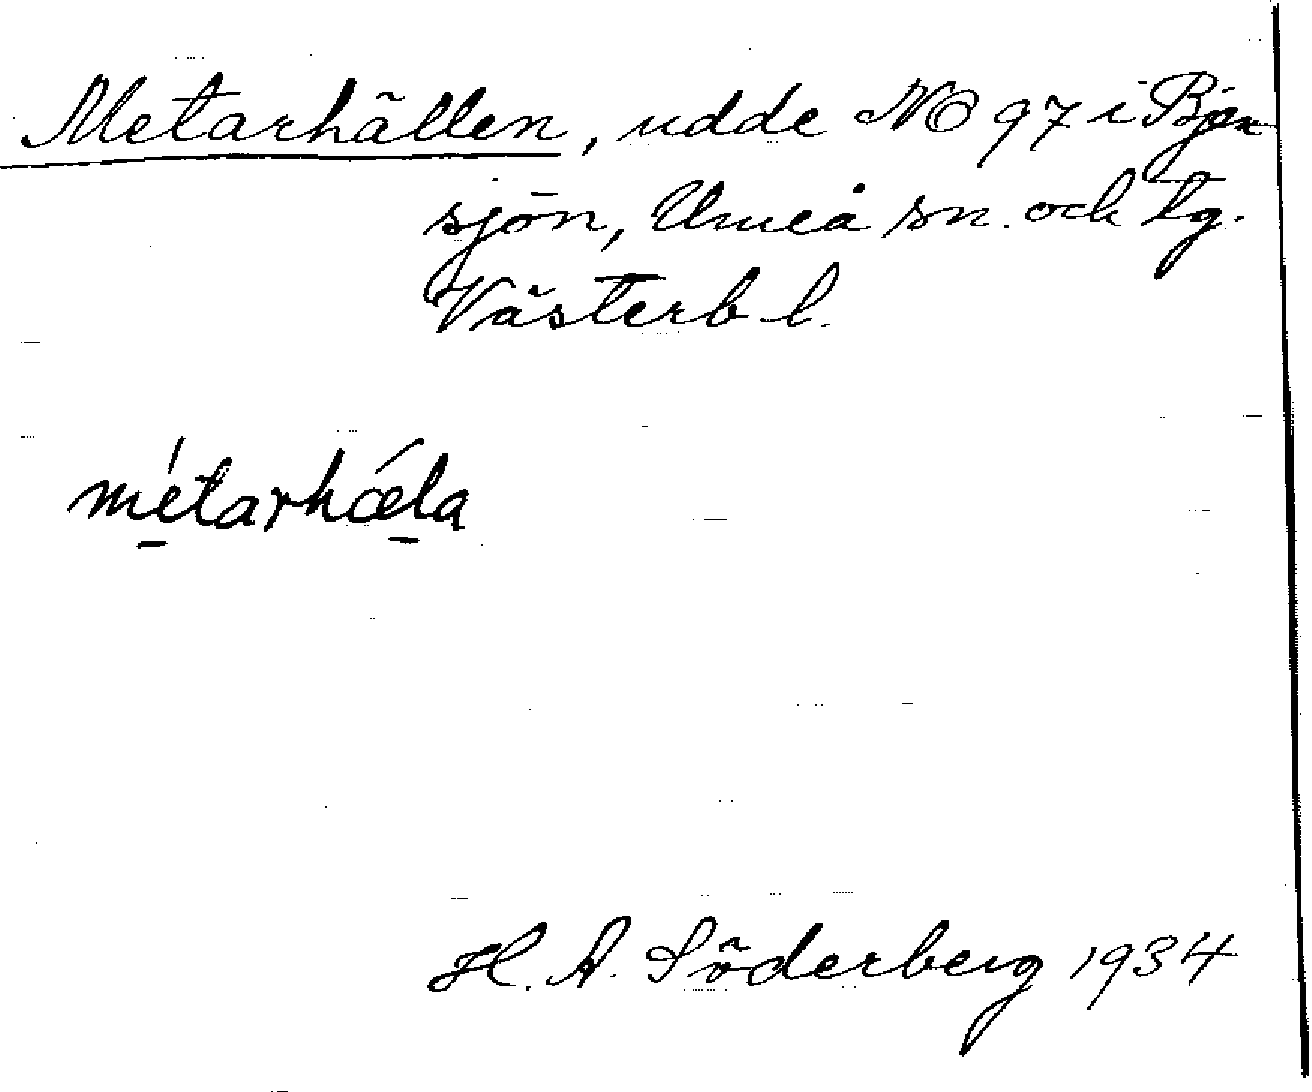 Metarhällen, udde NO 97 i Bjen
sjön, Umeå sn. och tg.
Västerb l.
métarhǽla
H. A. Söderberg 1934